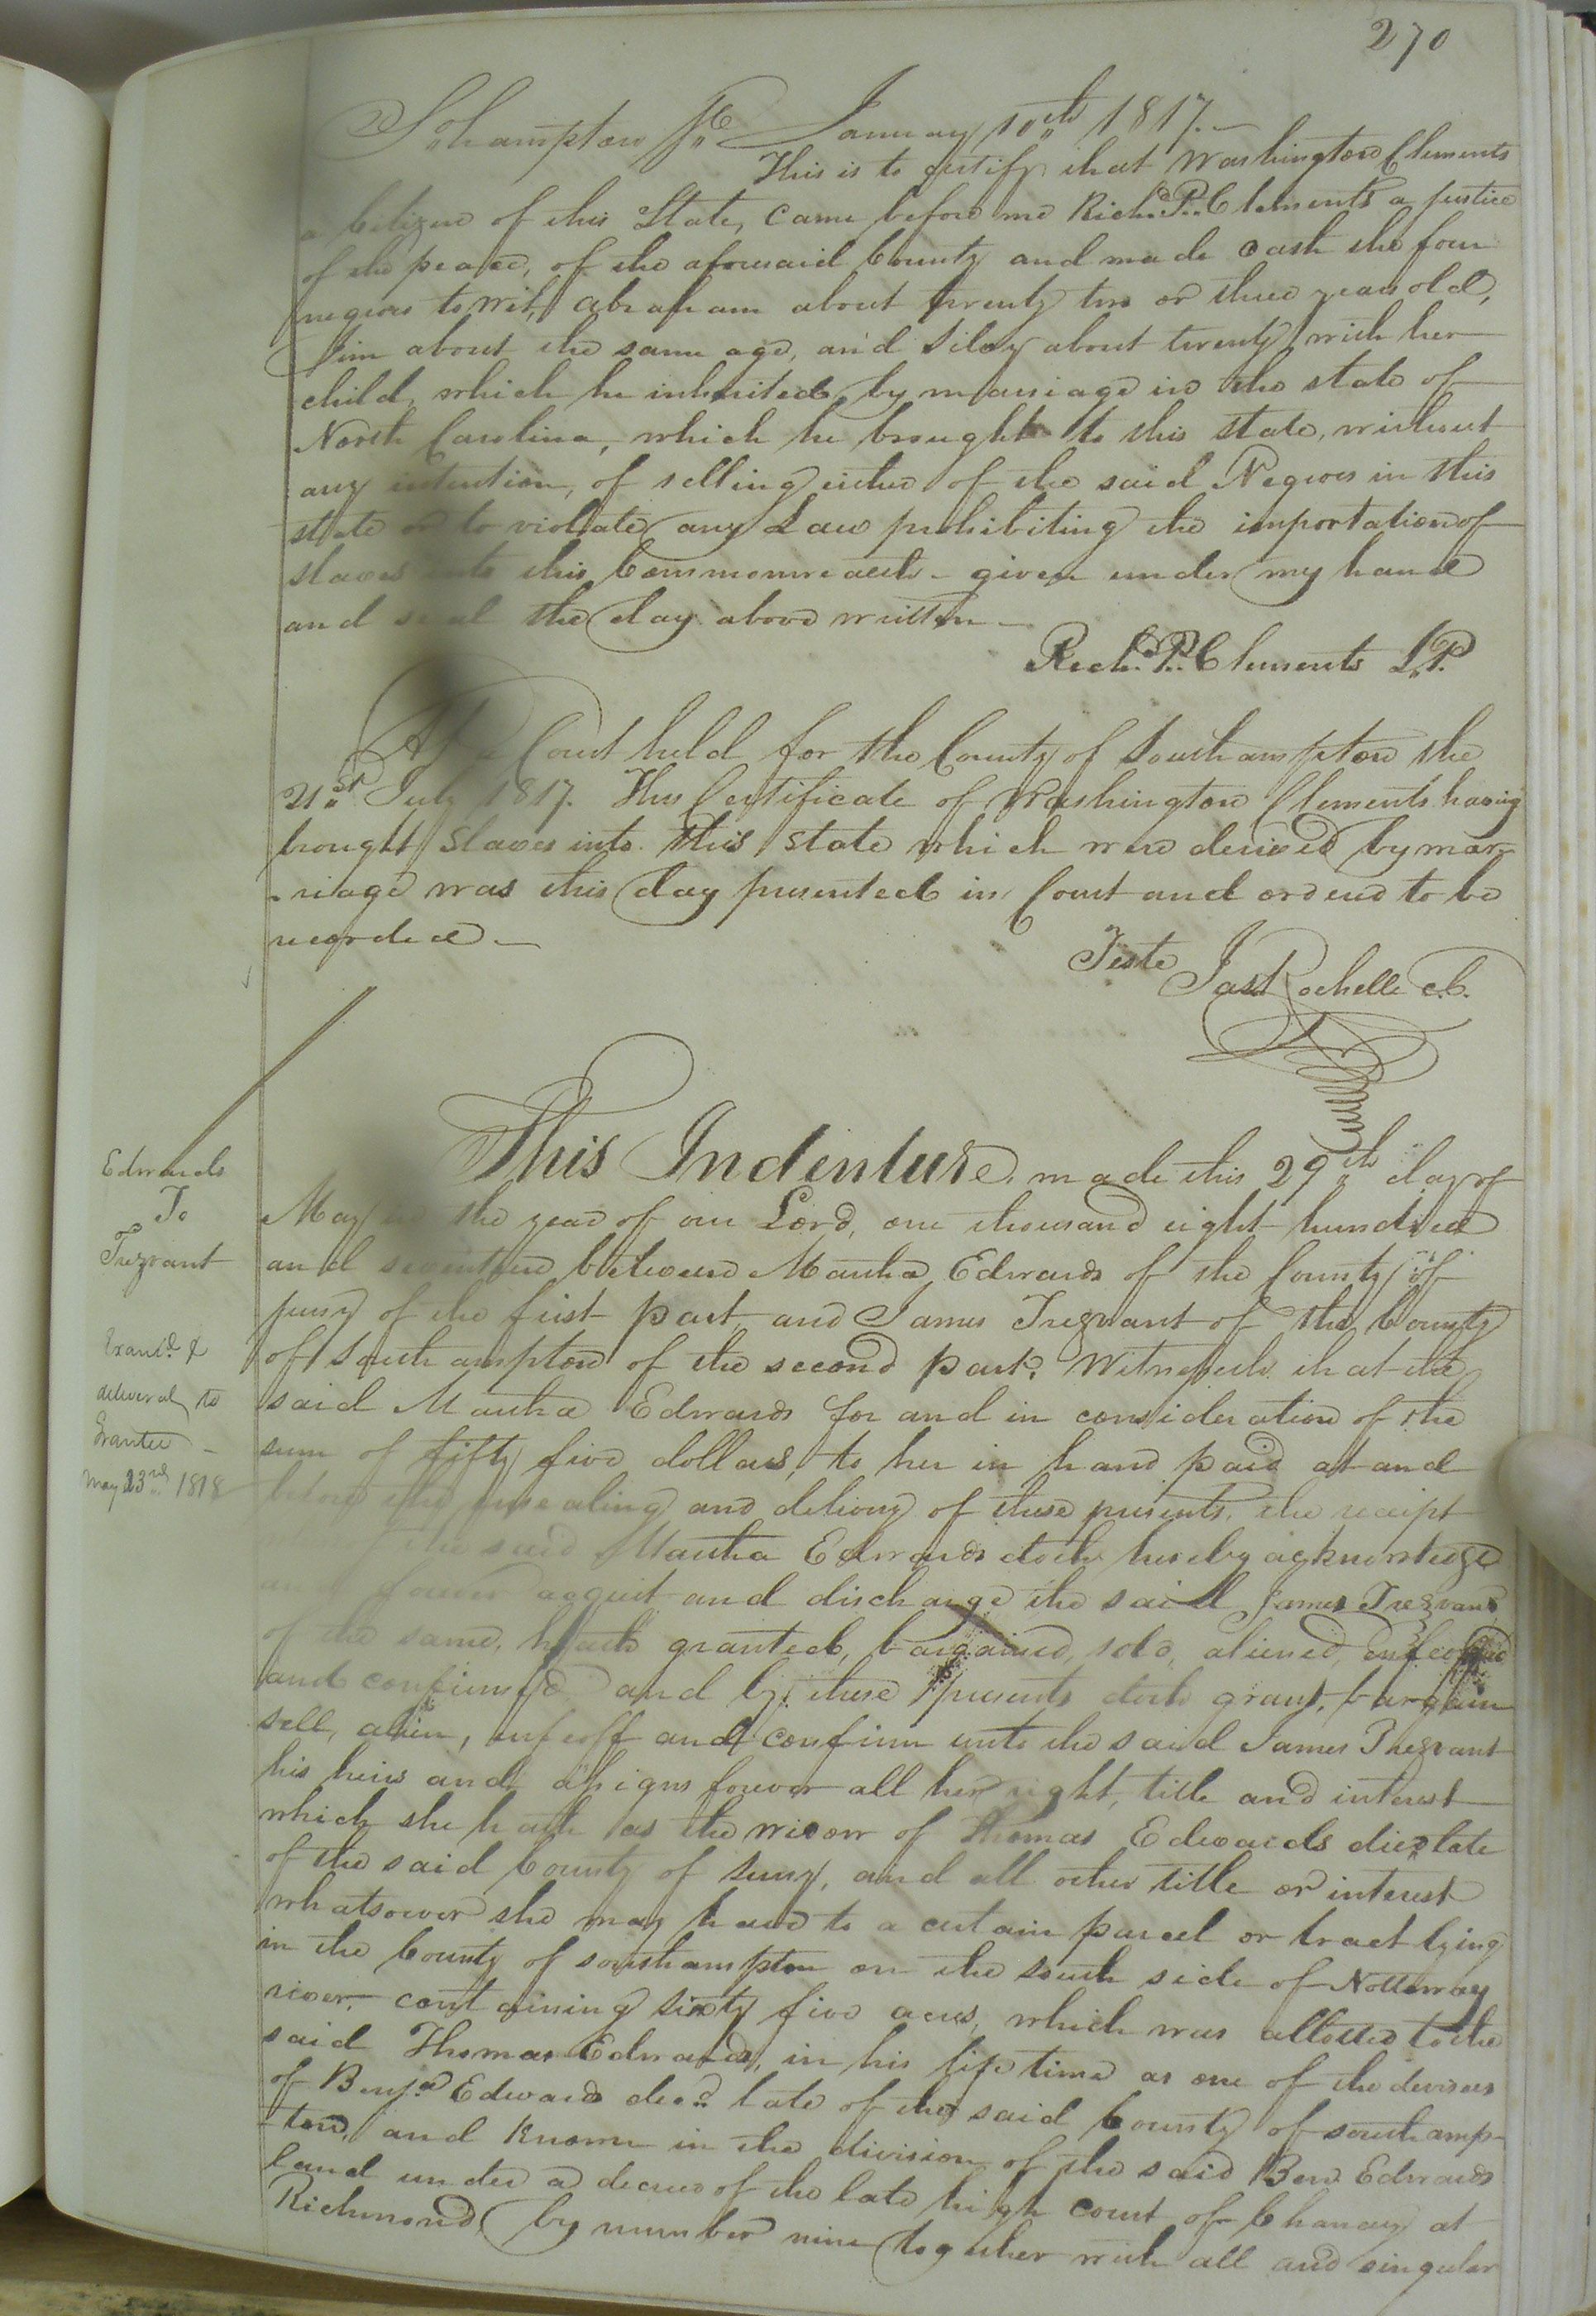 270
Sohampton Sc. January 10th 1817.
This is to certify that Washington Clements
a Citizen of this State, came before me Richd. P. Clements a justice
of the peace, of the aforesaid County and made oath the four
negroes to wit, Abraham about twenty two or three years old,
Jim about the same age, and Siley about twenty with her
child, which he inherited by marriage in the state of
North Carolina, which he brought to this state, without
any intention, of selling either of the said Negroes in this
state or to violate any Law prohibiting the importation of
slaves into this Commonwealth - given under my hand
and seal the day above written -
Richd. P. Clements J.P.
At a Court held for the County of Southampton the
21st. July 1817. This Certificate of Washington Clements having
brought Slaves into this state which were derived by mar-
-riage was this day presented in Court and ordered to be
recorded -
Teste
Jas. Rochelle c.c.
Edwards
To
Trezvant
Examd. &
deliverd to
Grantee -
May 23rd 1818
This Indenture, made this 29th day of
May in the year of our Lord, one thousand eight hundred
and seventeen between Martha Edwards of the County of
surry of the first part and James Trezvant of the County
of Southampton of the second part: Witnesseth that the
said Martha Edwards for and in consideration of the
sum of fifty five dollars, to her in hand paid at and
before the ensealing and delivery of these presents, the receipt
the said Martha Edwards doth hereby acknowledge
and forever acquit and discharge the said James Trezvant
of the same, hath granted, bargained, sold, aliened, enfeoffed
and confirmed and by these presents doth grant, bargain
sell, alien, enfeoff and confirm unto the said James Trezvant
his heirs and assigns forever all her right, title and interest
which she hath as the widow of Thomas Edwards decd late
of the said County of surry, and all other title or interest
whatsoever she may have to a certain parcel or tract lying
in the County of southampton on the south side of Nottoway
river, containing sixty five acres, which was allotted to the
said Thomas Edwards, in his life time as one of the devisees
of Benja. Edwards decd. late of the said County of southamp-
-ton, and known in the division of the said Ben Edwards
land under a decree of the late high court of Chancery at
Richmond by number nine together with all and singular